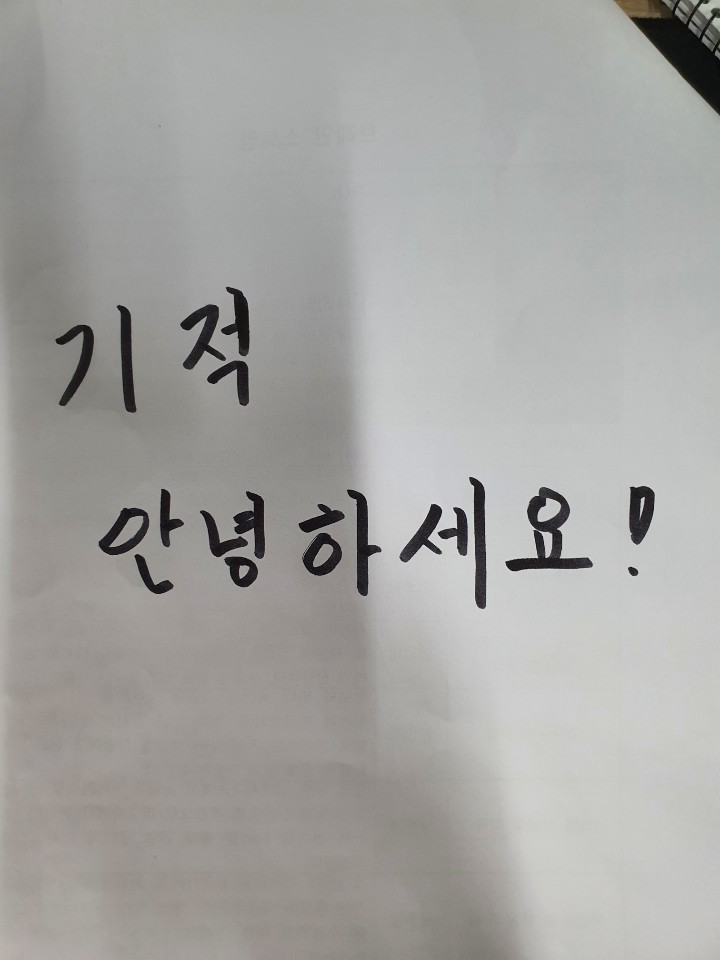 기적
안녕하세요!